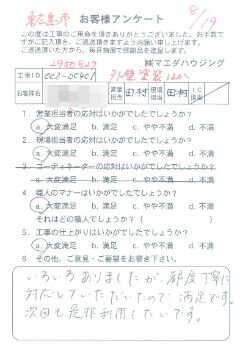 東広島市
8/19
お客様アンケート
この度は工事のご用命を頂きありがとうございました。お手数で
すがご記入頂き、ご返送頂きますようお願い申し上げます。
ご返送頂いた方から、毎月抽選で感謝品を進呈します。
2950827
㈱マエダハウジング
工事ID 002-00401 外壁塗装ほか
営業担当 田村 現場担当 田村 IC担当
1. 営業担当者の応対はいかがでしたでしょうか?
a. 大変満足 b. 満足 c. やや不満 d. 不満
2. 現場担当者の応対はいかがでしたでしょうか?
a. 大変満足 b. 満足 c. やや不満 d. 不満
3. コーディネーターの応対はいかがでしたでしょうか?
a. 大変満足 b. 満足 c. やや不満 d. 不満
4. 職人のマナーはいかがでしたでしょうか?
a. 大変満足 b. 満足 c. やや不満 d. 不満
それはどの職人でしょうか? ( )
5. 工事の仕上がりはいかがでしたでしょうか?
a. 大変満足 b. 満足 c. やや不満 d. 不満
6. その他、ご意見・ご要望をお書き下さい。
いろいろありましたが、都度丁寧に
対応していただいたので、満足です。
次回も是非利用したいです。